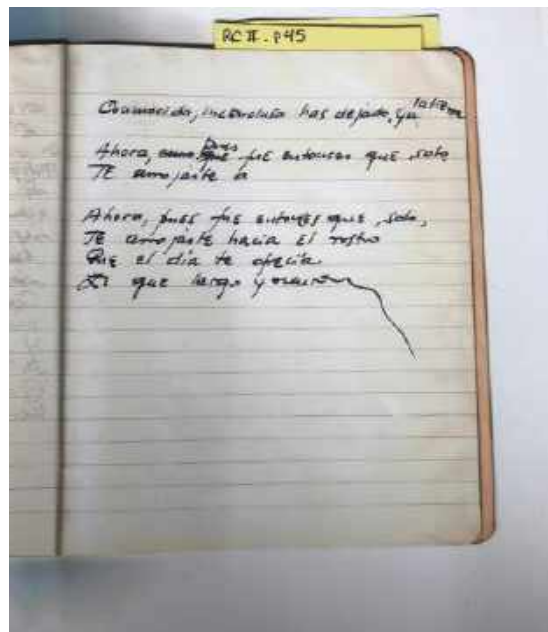 RC II. p45
inconclusa has dejado, ya la tierra
Ahora, pues fue entonces que solo
Te arrojaste a
Ahora, pues fue entonces que, solo,
Te arrojaste hacia el rostro
Que el día te ofrecía.
que largo y